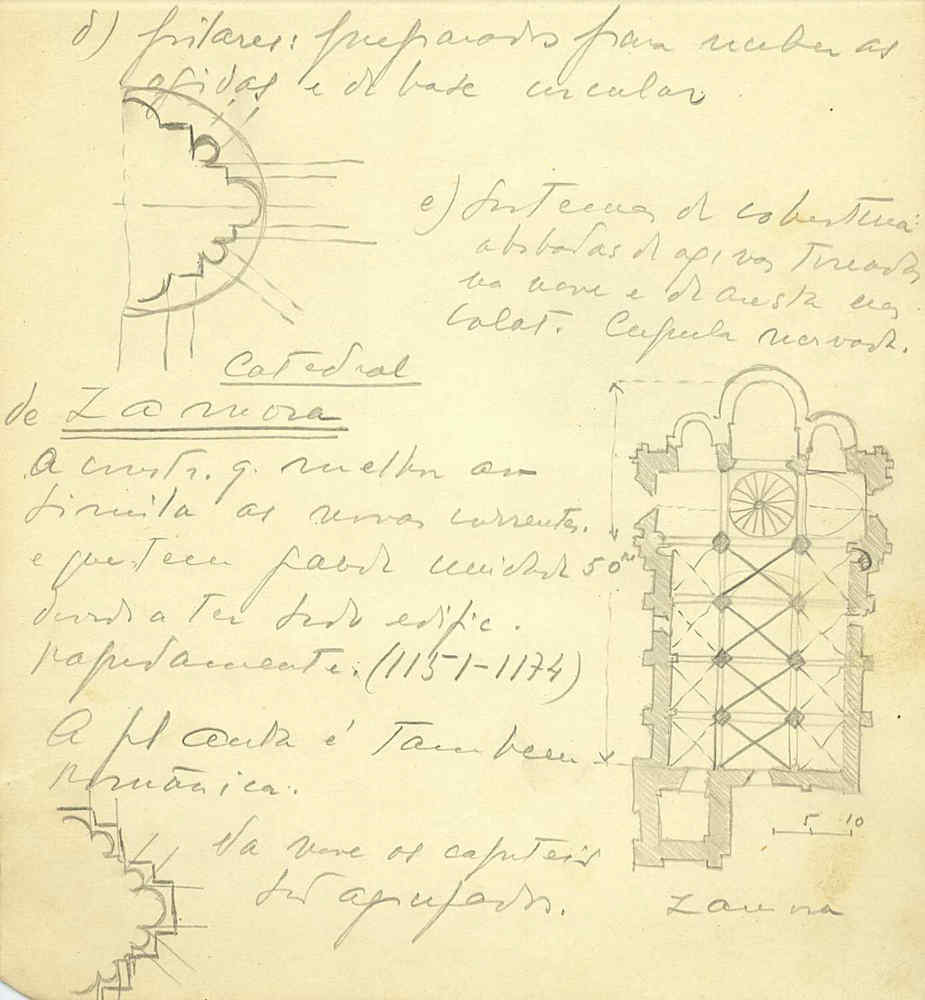 d) pilares: preparados para receber as
ogivas e de base circular
e) Sistemas de cobertura:
abobadas de ogivas
na nave e de aresta nas
colat. Cupula nervada.
Catedral
de Zamora
A constr. q. melhor as-
simila as novas correntes.
e que tem grande unidade
devido a ter sido edific.
rapidamente. (1151-1174)
50m
A planta é tambem
Românica.
Na nave os capiteis
são agrupados.
5 10
Zamora